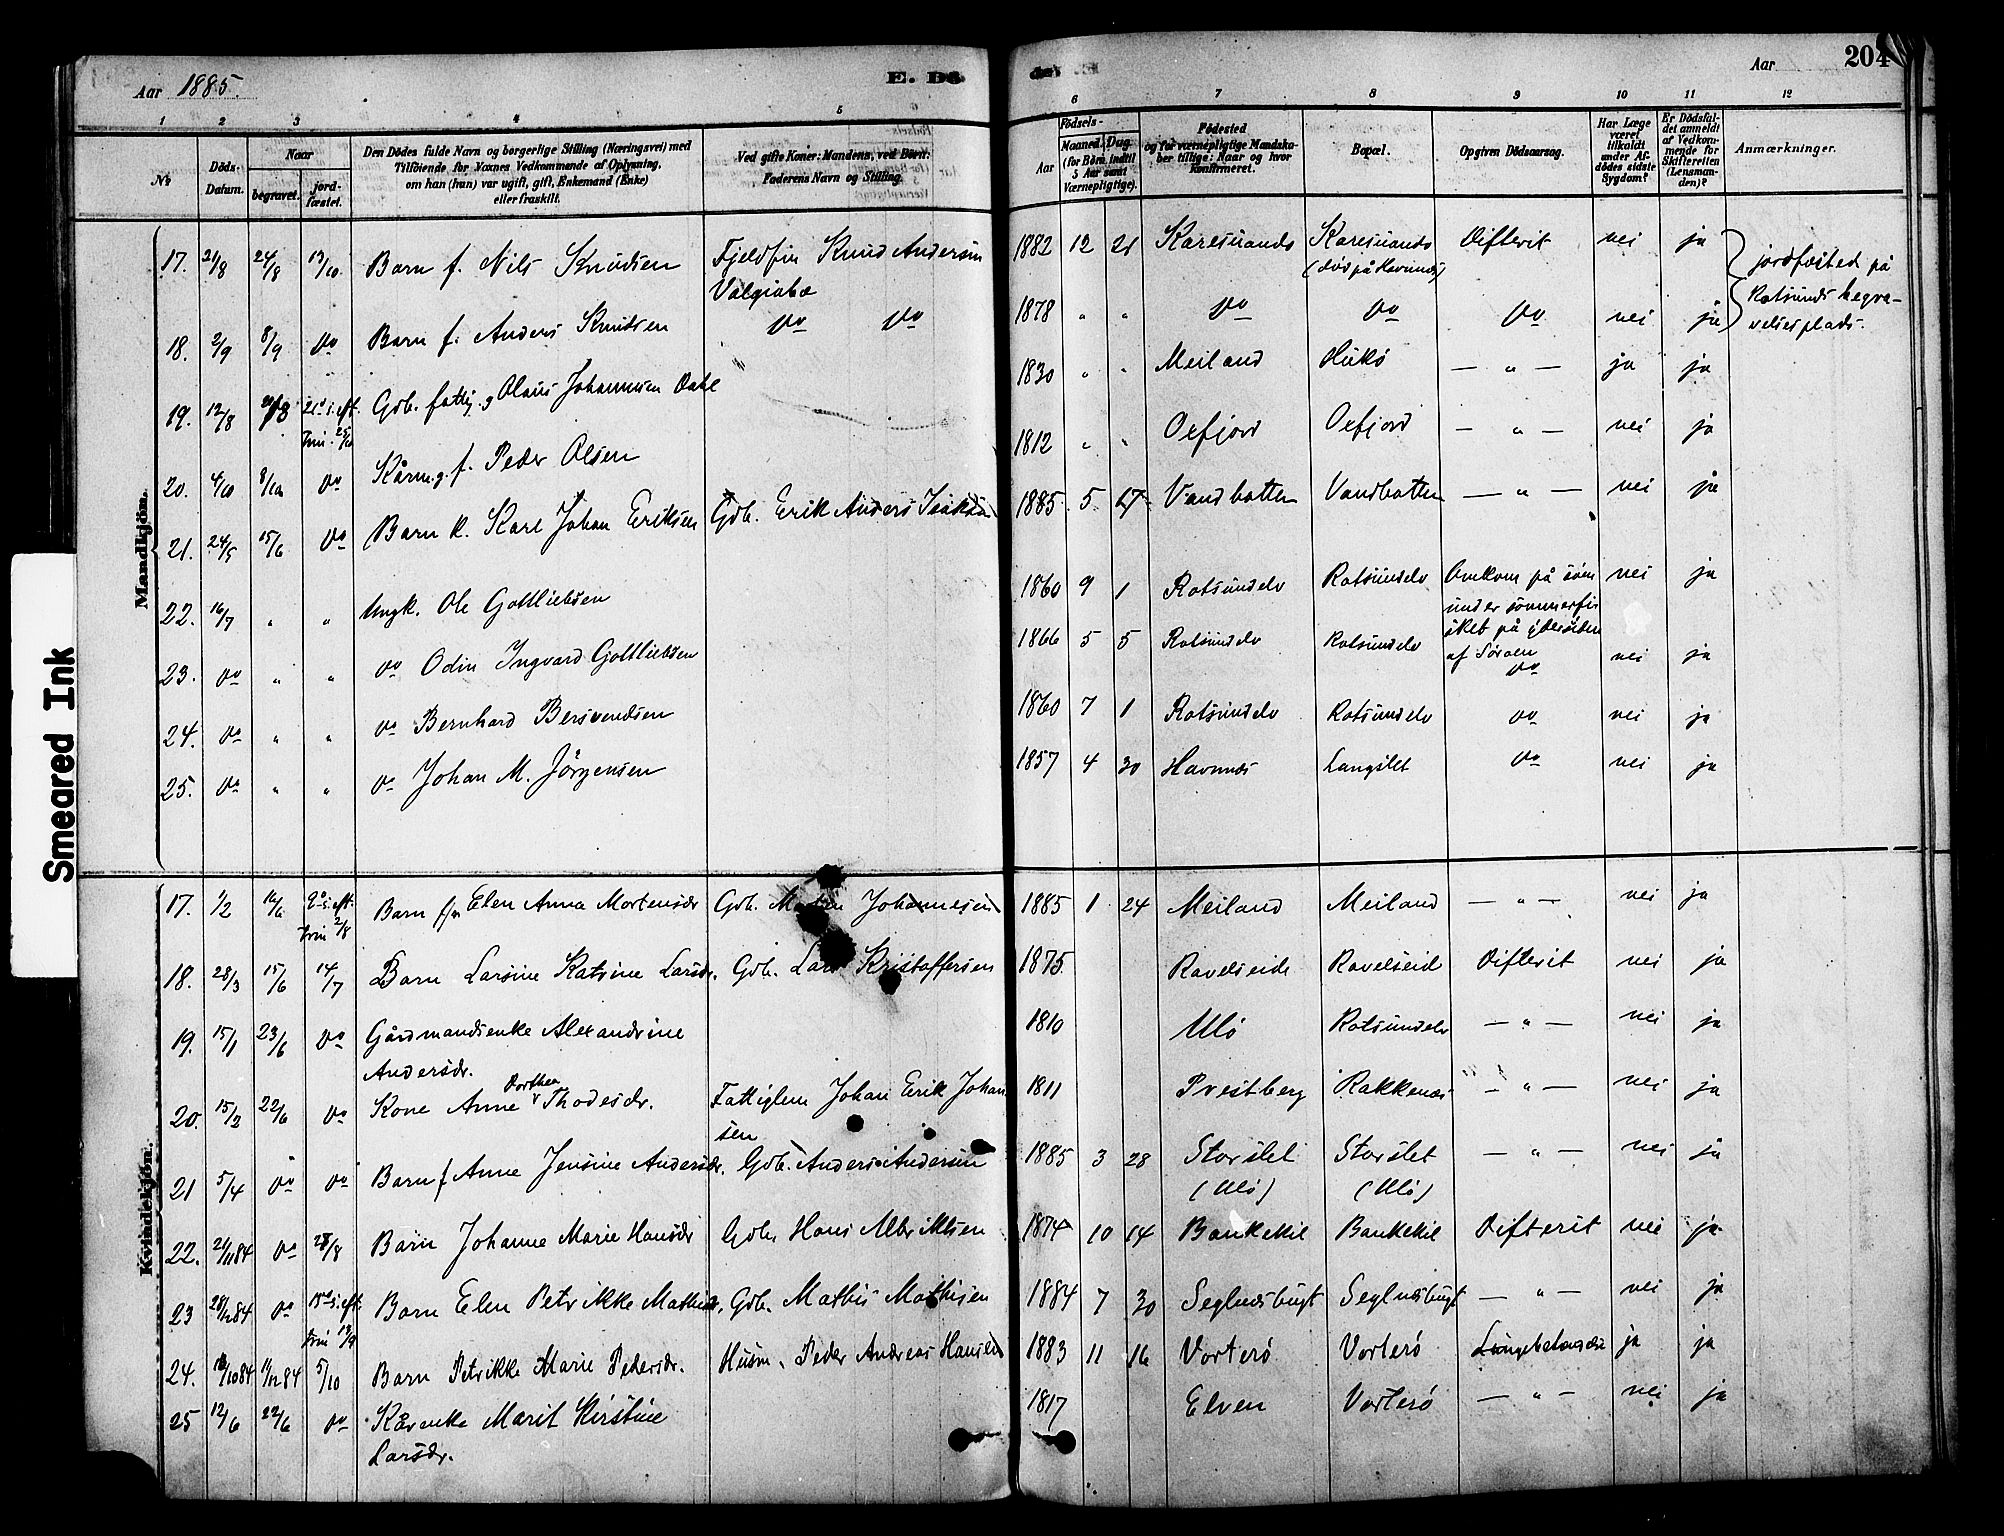 Aar 1885.
E. Dø
Aar
204
1 2 3 4 5 6 7 8 9 10 11 12
№
Döds-Datum.
Naar
begravet.
jord-fæstet.
Den Dödes fulde Navn og borgerlige Stilling (Næringsvei) med
Tilföiende for Voxnes Vedkommende af Oplysning,
om han (hun) var ugift, gift, Enkemand (Enke)
eller fraskilt.
Ved gifte Koner: Mandens, ved Börn:
Faderens Navn og Stilling.
Födsels-
Aar
Maaned. Dag.
(for Börn indtil
5 Aar samt
Værnepligtige).
Födested
og for værnepligtige Mandska-
ber tillige: Naar og hvor
konfirmeret.
Bopæl.
Opgiven Dödsaarsag.
Har Læge
været
tilkaldt
under Af-
dödes sidste
Sygdom?
Er Dödsfal-
det anmeldt
af Vedkom-
mende for
Skifteretten
(Lensman-
den)?
Anmærkninger.
Mandkjön.
17. 21/8 24/8 13/10 Barn f. Nils Knudsen Fjeldfin Knud Andersen 1882 12 21 Karesuando Karesuando Difterit nei ja jordfæsted på
Valgiabæ (død på Havnnes) Rotsunds begra-
18. 2/9 8/9 do Barn f. Anders Knudsen do do 1878 " " do do do nei ja velsesplads.
19. 12/8 21 s. eft. Gdb. fattig Olaus Johannesen Dahl 1830 " " Meiland Hukö — " — ja ja
trin. 25/10
20. 4/10 8/10 do Kårmg. f. Peder Olsen 1812 " " Oxfjord Oxfjord — " — nei ja
21. 24/5 15/6 do Barn k. Karl Johan Eriksen Gdb. Erik Anders Isaksen 1885 5 17 Vandbotten Vandbotten — " — nei ja
22. 16/7 " " Ungk. Ole Gottliebsen 1860 9 1 Rotsundelv Rotsundelv Omkom på söen nei ja
under sommerfi
sket på ydersiden
af Söröen
23. do " " do Odin Ingvard Gottliebsen 1866 5 5 Rotsundelv Rotsundelv do nei ja
24. do " " do Bernhard Bersvendsen 1860 7 1 Rotsundelv Rotsundelv do nei ja
25. do " " do Johan M. Jörgensen 1857 4 30 Havnnes Langslet do nei ja
Kvindekjön.
17. 1/2 14/6 9 s. eft. Barn f. Elen Anna Mortensdr Gdb. Morten Johannesen 1885 1 24 Meiland Meiland — " — nei ja
trin 2/8
18. 28/3 15/6 14/7 Barn Larsine Katrine Larsdr. Gdb. Lars Kristoffersen 1875 Ravelseide Ravelseid Difterit nei ja
19. 15/1 23/6 do Gårdmandsenke Alexandrine 1810 Ulö Rotsundelv — " — nei ja
Andersdr.
20. 15/2 22/6 do Kone Anne Dorthea Thodesdr. Fattiglem Johan Erik Johan 1811 Prestberg Rakkenæs — " — nei ja
sen
21 5/4 do do Barn f Anne Jensine Andersdr. Gdb. Anders Andersen 1885 3 28 Storslet Storslet — " — nei ja
(Ulö) (Ulö)
22. 21/11 84 do 28/8 Barn Johanne Marie Hansdr Gdb. Hans Albriktsen 1874 10 14 Bankekil Bankekil Difterit nei ja
23 28/12 84 do 15 s. eft. Barn Elen Petrikke Mathisdr. Gdb. Mathis Mathisen 1884 7 30 Seglnæsbugt Seglnæsbugt — " — nei ja
trin 13/9
24. 18/10 84 11/12 84 5/10 Barn Petrikke Marie Pedersdr. Husm. Peder Andreas Hansen 1883 11 16 Vorterö Vorterö Lungebetændelse ja ja
25 12/6 22/6 do Kårenke Marit Kirstine 1817 Elven Vorterö — " — nei ja
Larsdr.
Smeared Ink